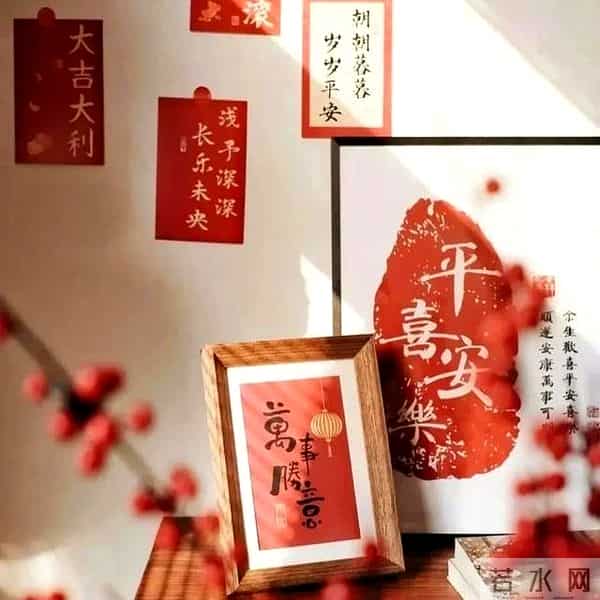 大吉大利
滚
朝朝暮暮
岁岁平安
浅予深深
长乐未央
平安
喜樂
余生歡喜平安喜
順遂安康萬事可
萬事勝意
若水网